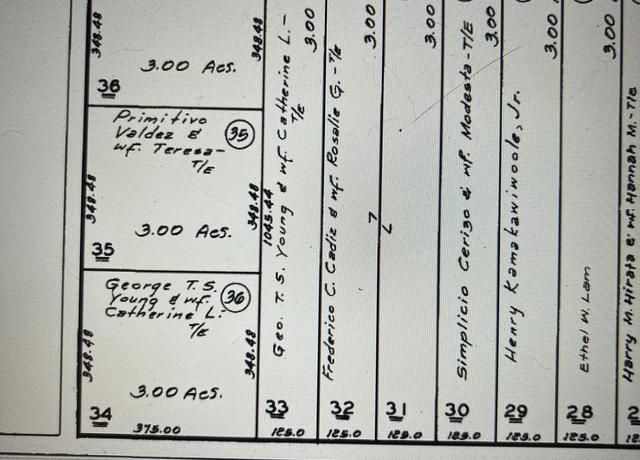 348.48
348.48
3.00 Acs.
36
Primitivo
Valdez &
wf. Teresa-
T/E
35
348.48
348.48
3.00 Acs.
35
George T. S.
Young & wf.
Catherine L.
T/E
36
348.48
348.48
3.00 Acs.
34
375.00
1045.44
Geo. T. S. Young & wf. Catherine L.-
T/E
3.00
33
125.0
Frederico C. Cadiz & wf. Rosalie G.-T/E
3.00
32
125.0
3.00
7
31
125.0
Simplicio Cerizo & wf. Modesta-T/E
3.00
30
125.0
Henry Kamakawiwoole, Jr.
3.00
29
125.0
Ethel W. Lam
3.00
28
125.0
Harry M. Hirata & wf. Hannah M.-T/E
2
125.